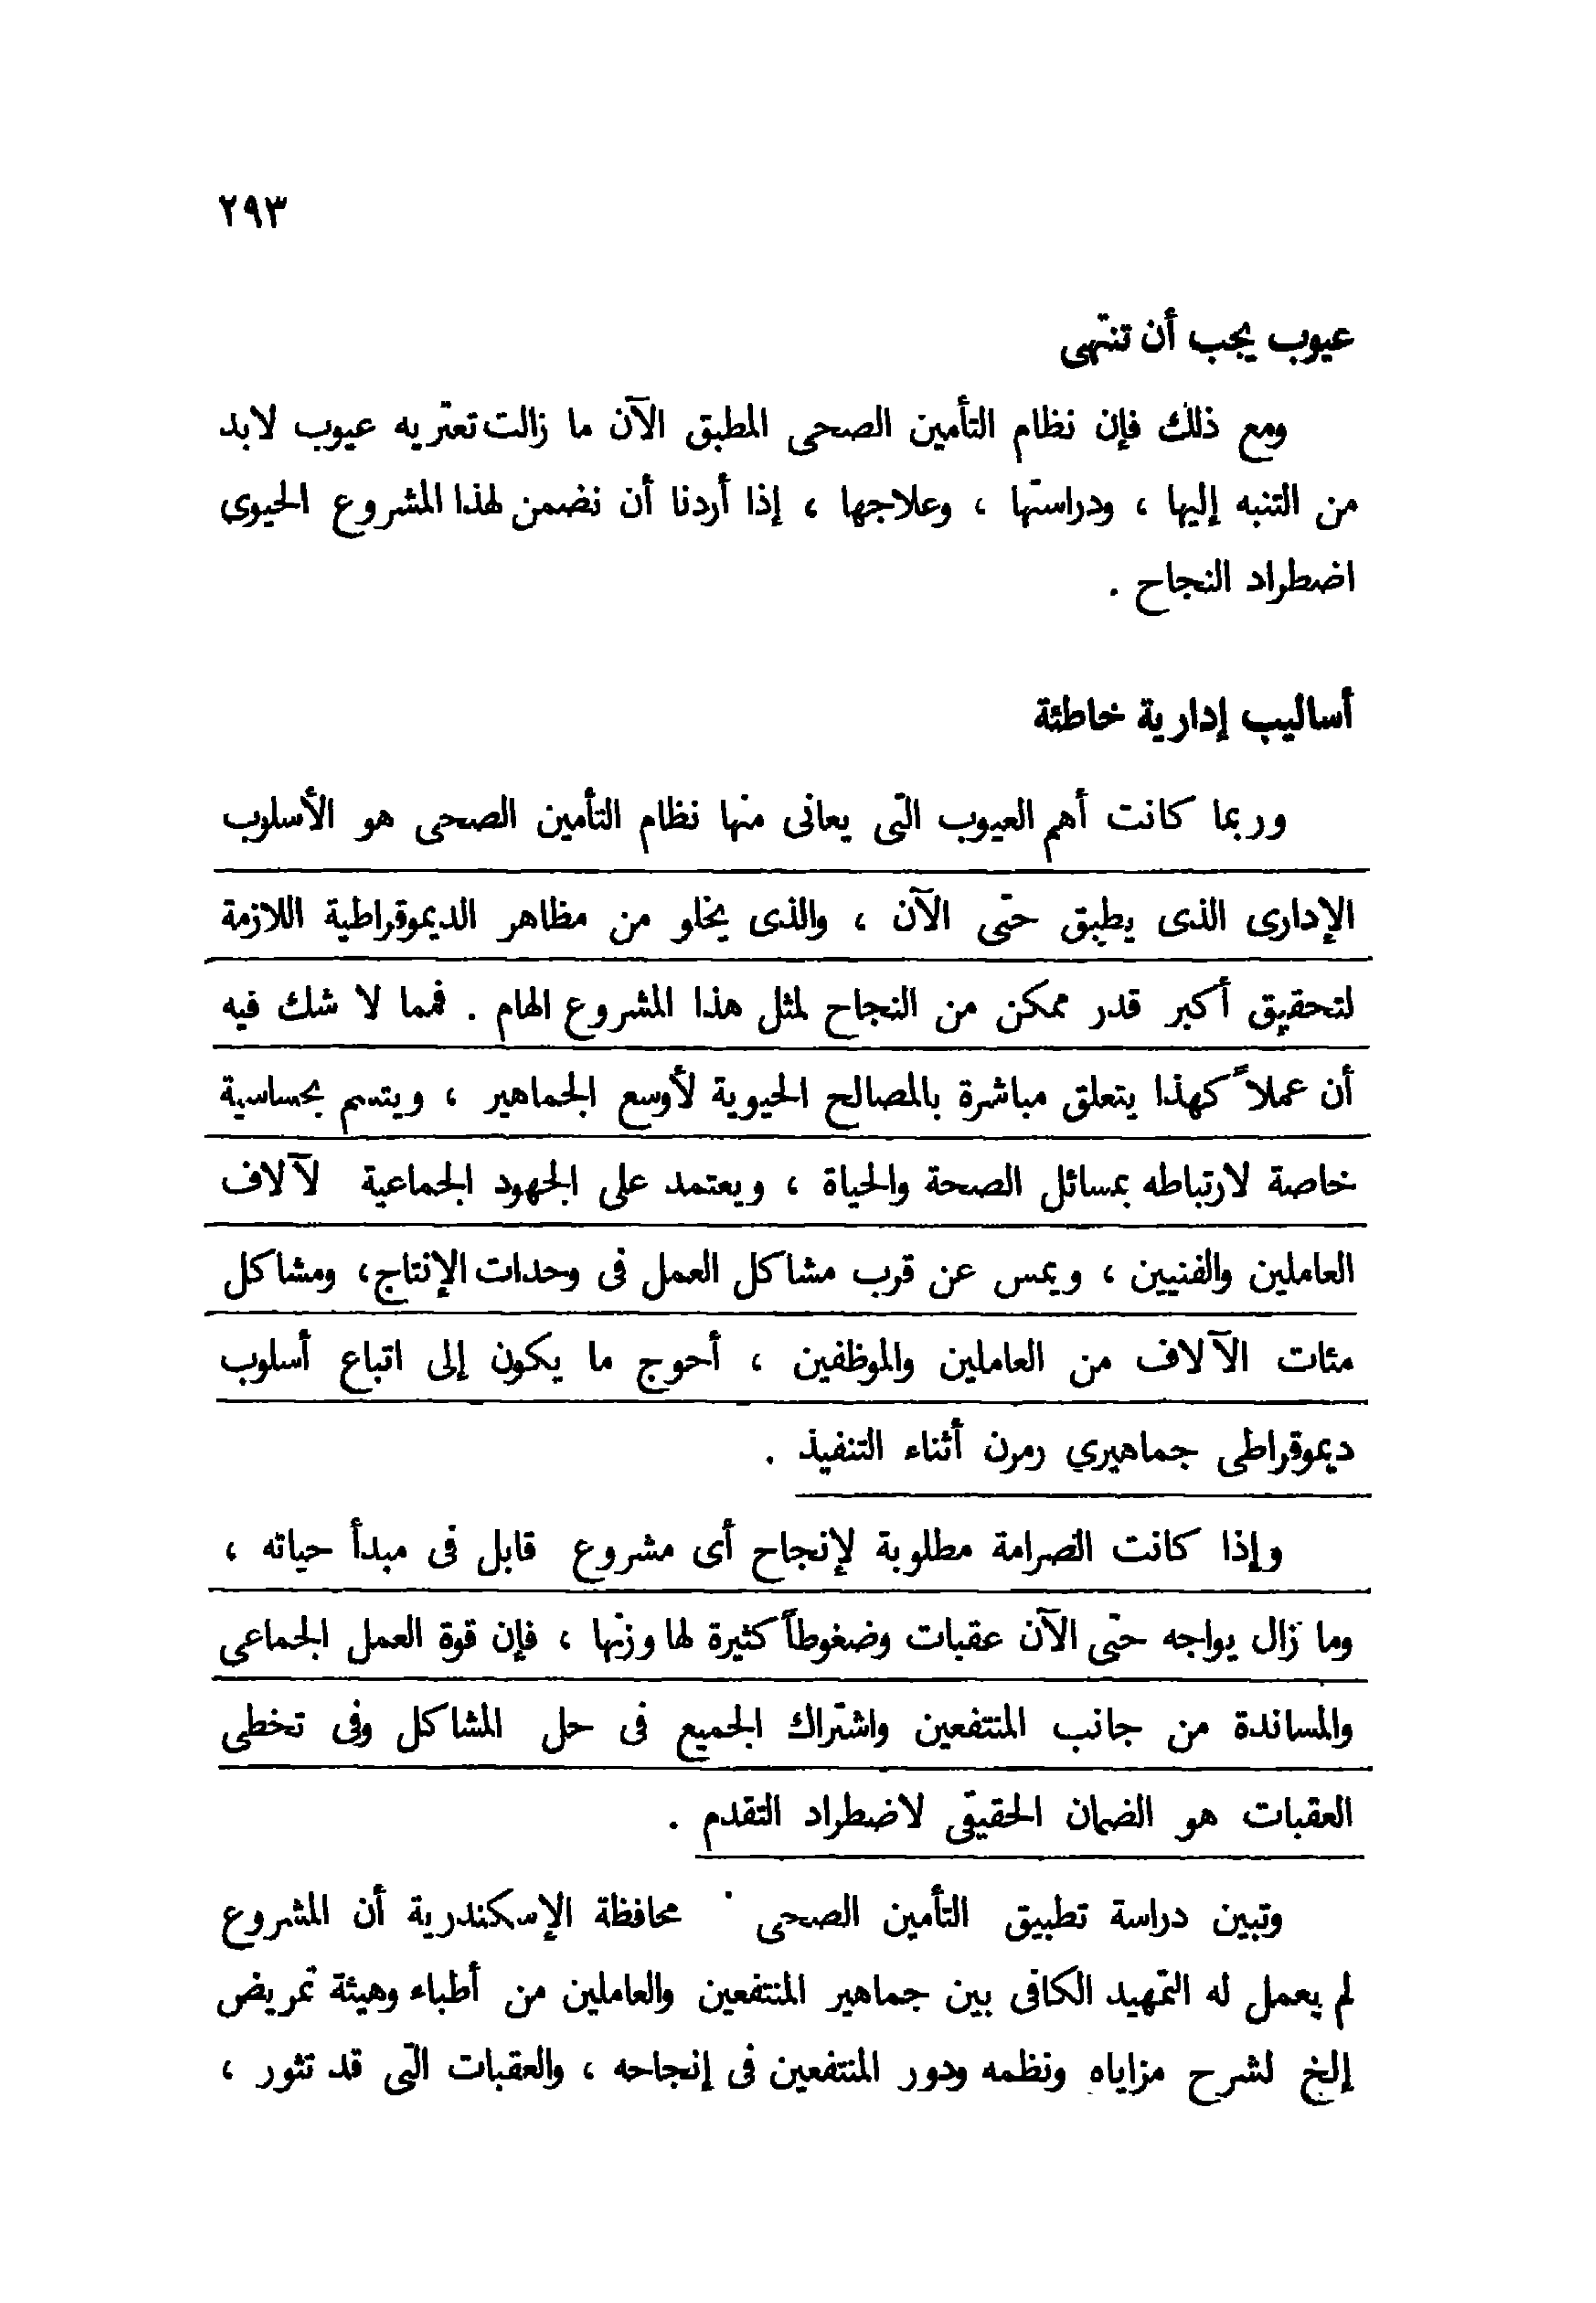 ٢٩٣
عيوب يجب أن تنتهى
ومع ذلك فإن نظام التأمين الصحى المطبق الآن ما زالت تعتريه عيوب لابد
من التنبه إليها ، ودراستها ، وعلاجها ، إذا أردنا أن نضمن لهذا المشروع الحيوى
اضطراد النجاح .
أساليب إدارية خاطئة
وربما كانت أهم العيوب التى يعانى منها نظام التأمين الصحى هو الأسلوب
الإدارى الذى يطبق حتى الآن ، والذى يخلو من مظاهر الديموقراطية اللازمة
لتحقيق أكبر قدر ممكن من النجاح لمثل هذا المشروع الهام . فمما لا شك فيه
أن عملاً كهذا يتعلق مباشرة بالمصالح الحيوية لأوسع الجماهير ، ويتسم بحساسية
خاصة لارتباطه بمسائل الصحة والحياة ، ويعتمد على الجهود الجماعية لآلاف
العاملين والفنيين ، ويمس عن قرب مشاكل العمل فى وحدات الإنتاج، ومشاكل
مئات الآلاف من العاملين والموظفين ، أحوج ما يكون إلى اتباع أسلوب
ديموقراطى جماهيري رمرن أثناء التنفيذ .
وإذا كانت الصرامة مطلوبة لإنجاح أى مشروع قابل فى مبدأ حياته ،
وما زال يواجه حتى الآن عقبات وضغوطاً كثيرة لها وزنها ، فإن قوة العمل الجماعى
والمساندة من جانب المنتفعين واشتراك الجميع فى حل المشاكل وفى تخطى
العقبات هو الضمان الحقيقى لاضطراد التقدم .
وتبين دراسة تطبيق التأمين الصحى محافظة الإسكندرية أن المشروع
لم يعمل له التمهيد الكافى بين جماهير المنتفعين والعاملين من أطباء وهيئة تمريض
إلخ لشرح مزاياه ونظمه ودور المنتفعين فى إنجاحه ، والعقبات التى قد تثور ،